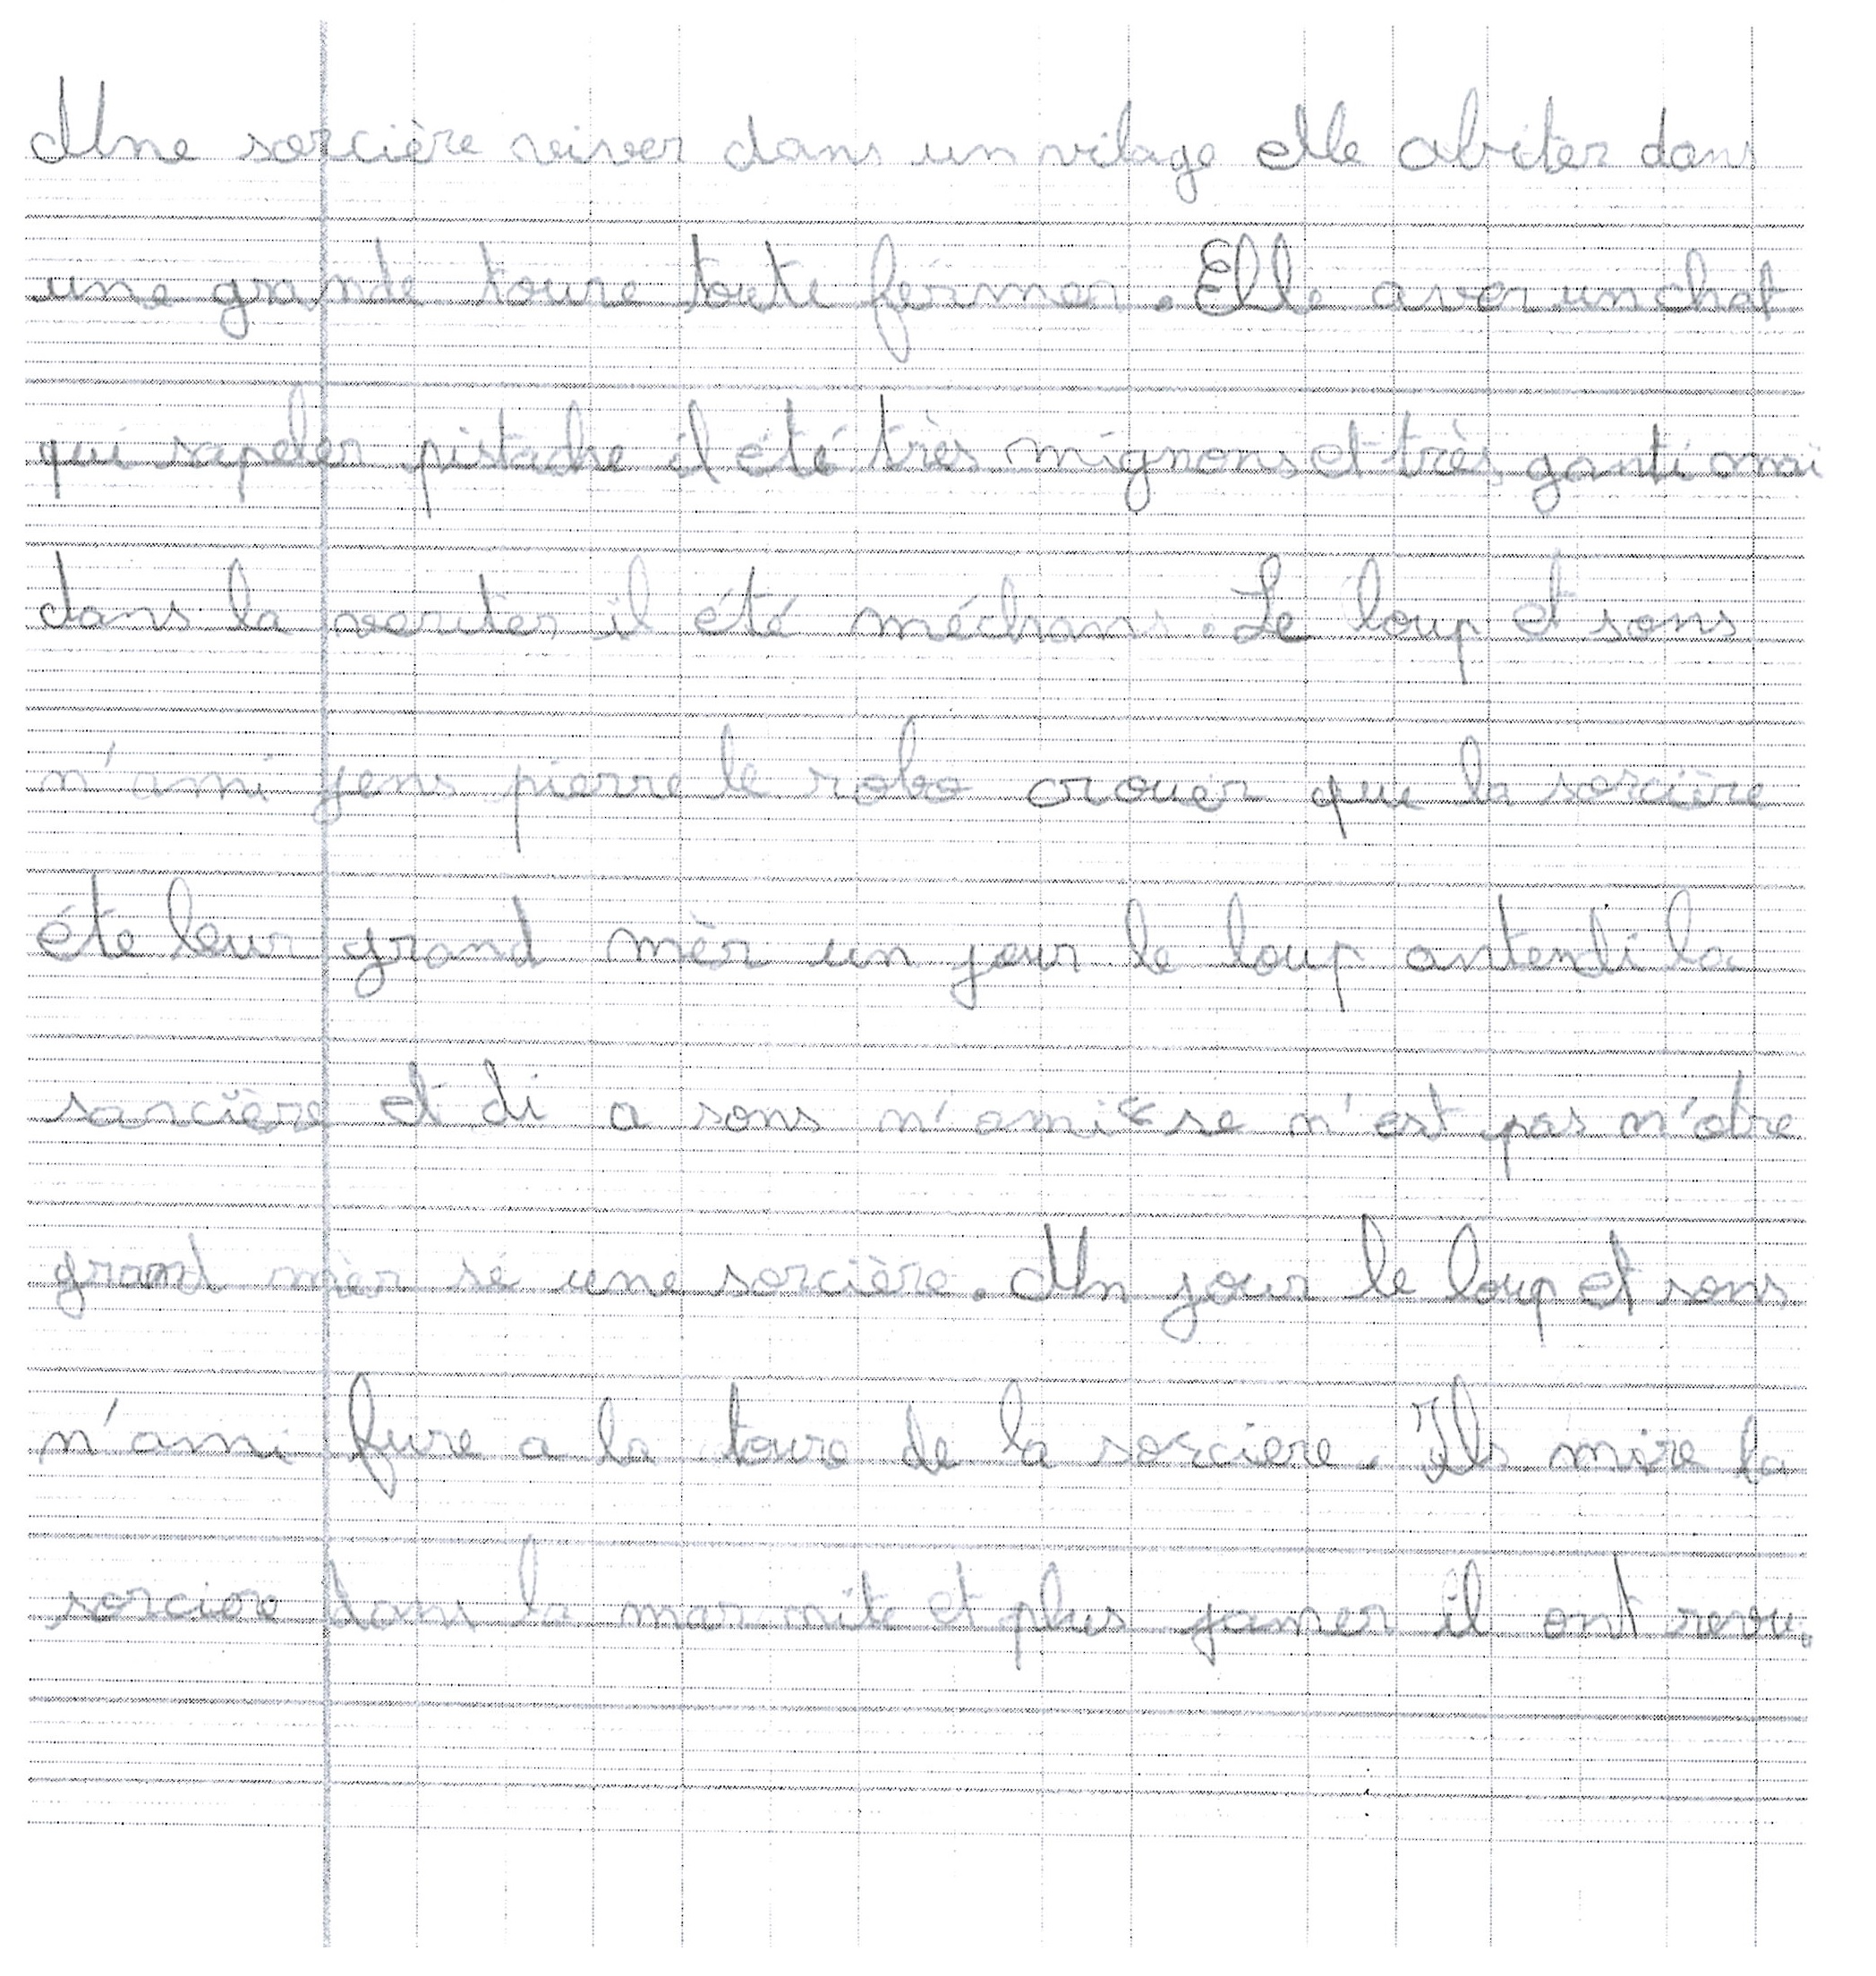 Une sorcière viver dans un vilage elle abiter dans
une grande toure toute fermer. Elle aver un chat
qui sapeler pistache il été très mignons et très ganti mai
dans la veriter il été méchans. Le loup et sons
n'ami jens pierre le robo crouer que la sorcière
éte leur grand mèr un jour le loup antendi la
sorcière et di a sons n'ami se n'est pas n'otre
grand mèr sé une sorcière. Un jour le loup et sons
n'ami fure a la toure de la sorciere. Ils mire la
sorciere dans la marmite et plus jamer il ont revu.